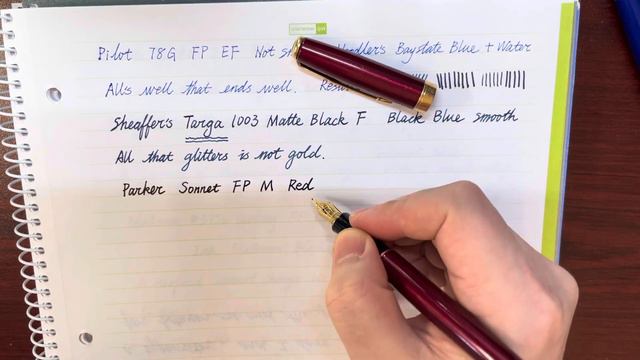 Pilot 78G FP EF Not Noodler's Baystate Blue + Water
All's well that ends well.
Sheaffer's Targa 1003 Matte Black F Black Blue smooth
All that glitters is not gold.
Parker Sonnet FP M Red